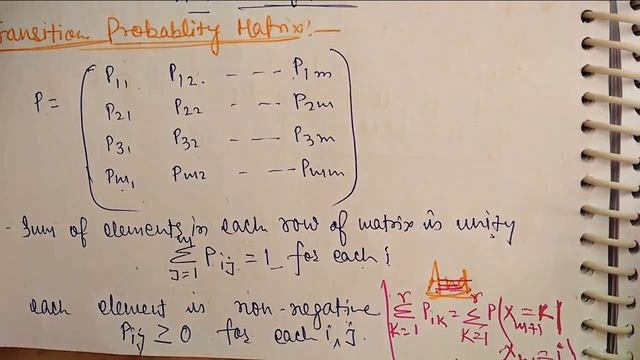 Transition Probablity Matrix:-
P = ( P11 P12 - - - P1m
P21 P22 - - - P2m
P31 P32 - - - P3m
Pm1 Pm2 - - - Pmm )
- Sum of elements in each row of matrix is unity
m∑j=1 Pij = 1 for each i
each element is non-negative
Pij ≥ 0 for each i, j.
r∑K=1 PiK = r∑K=1 P(Xn+1 = K|
Xn = i)